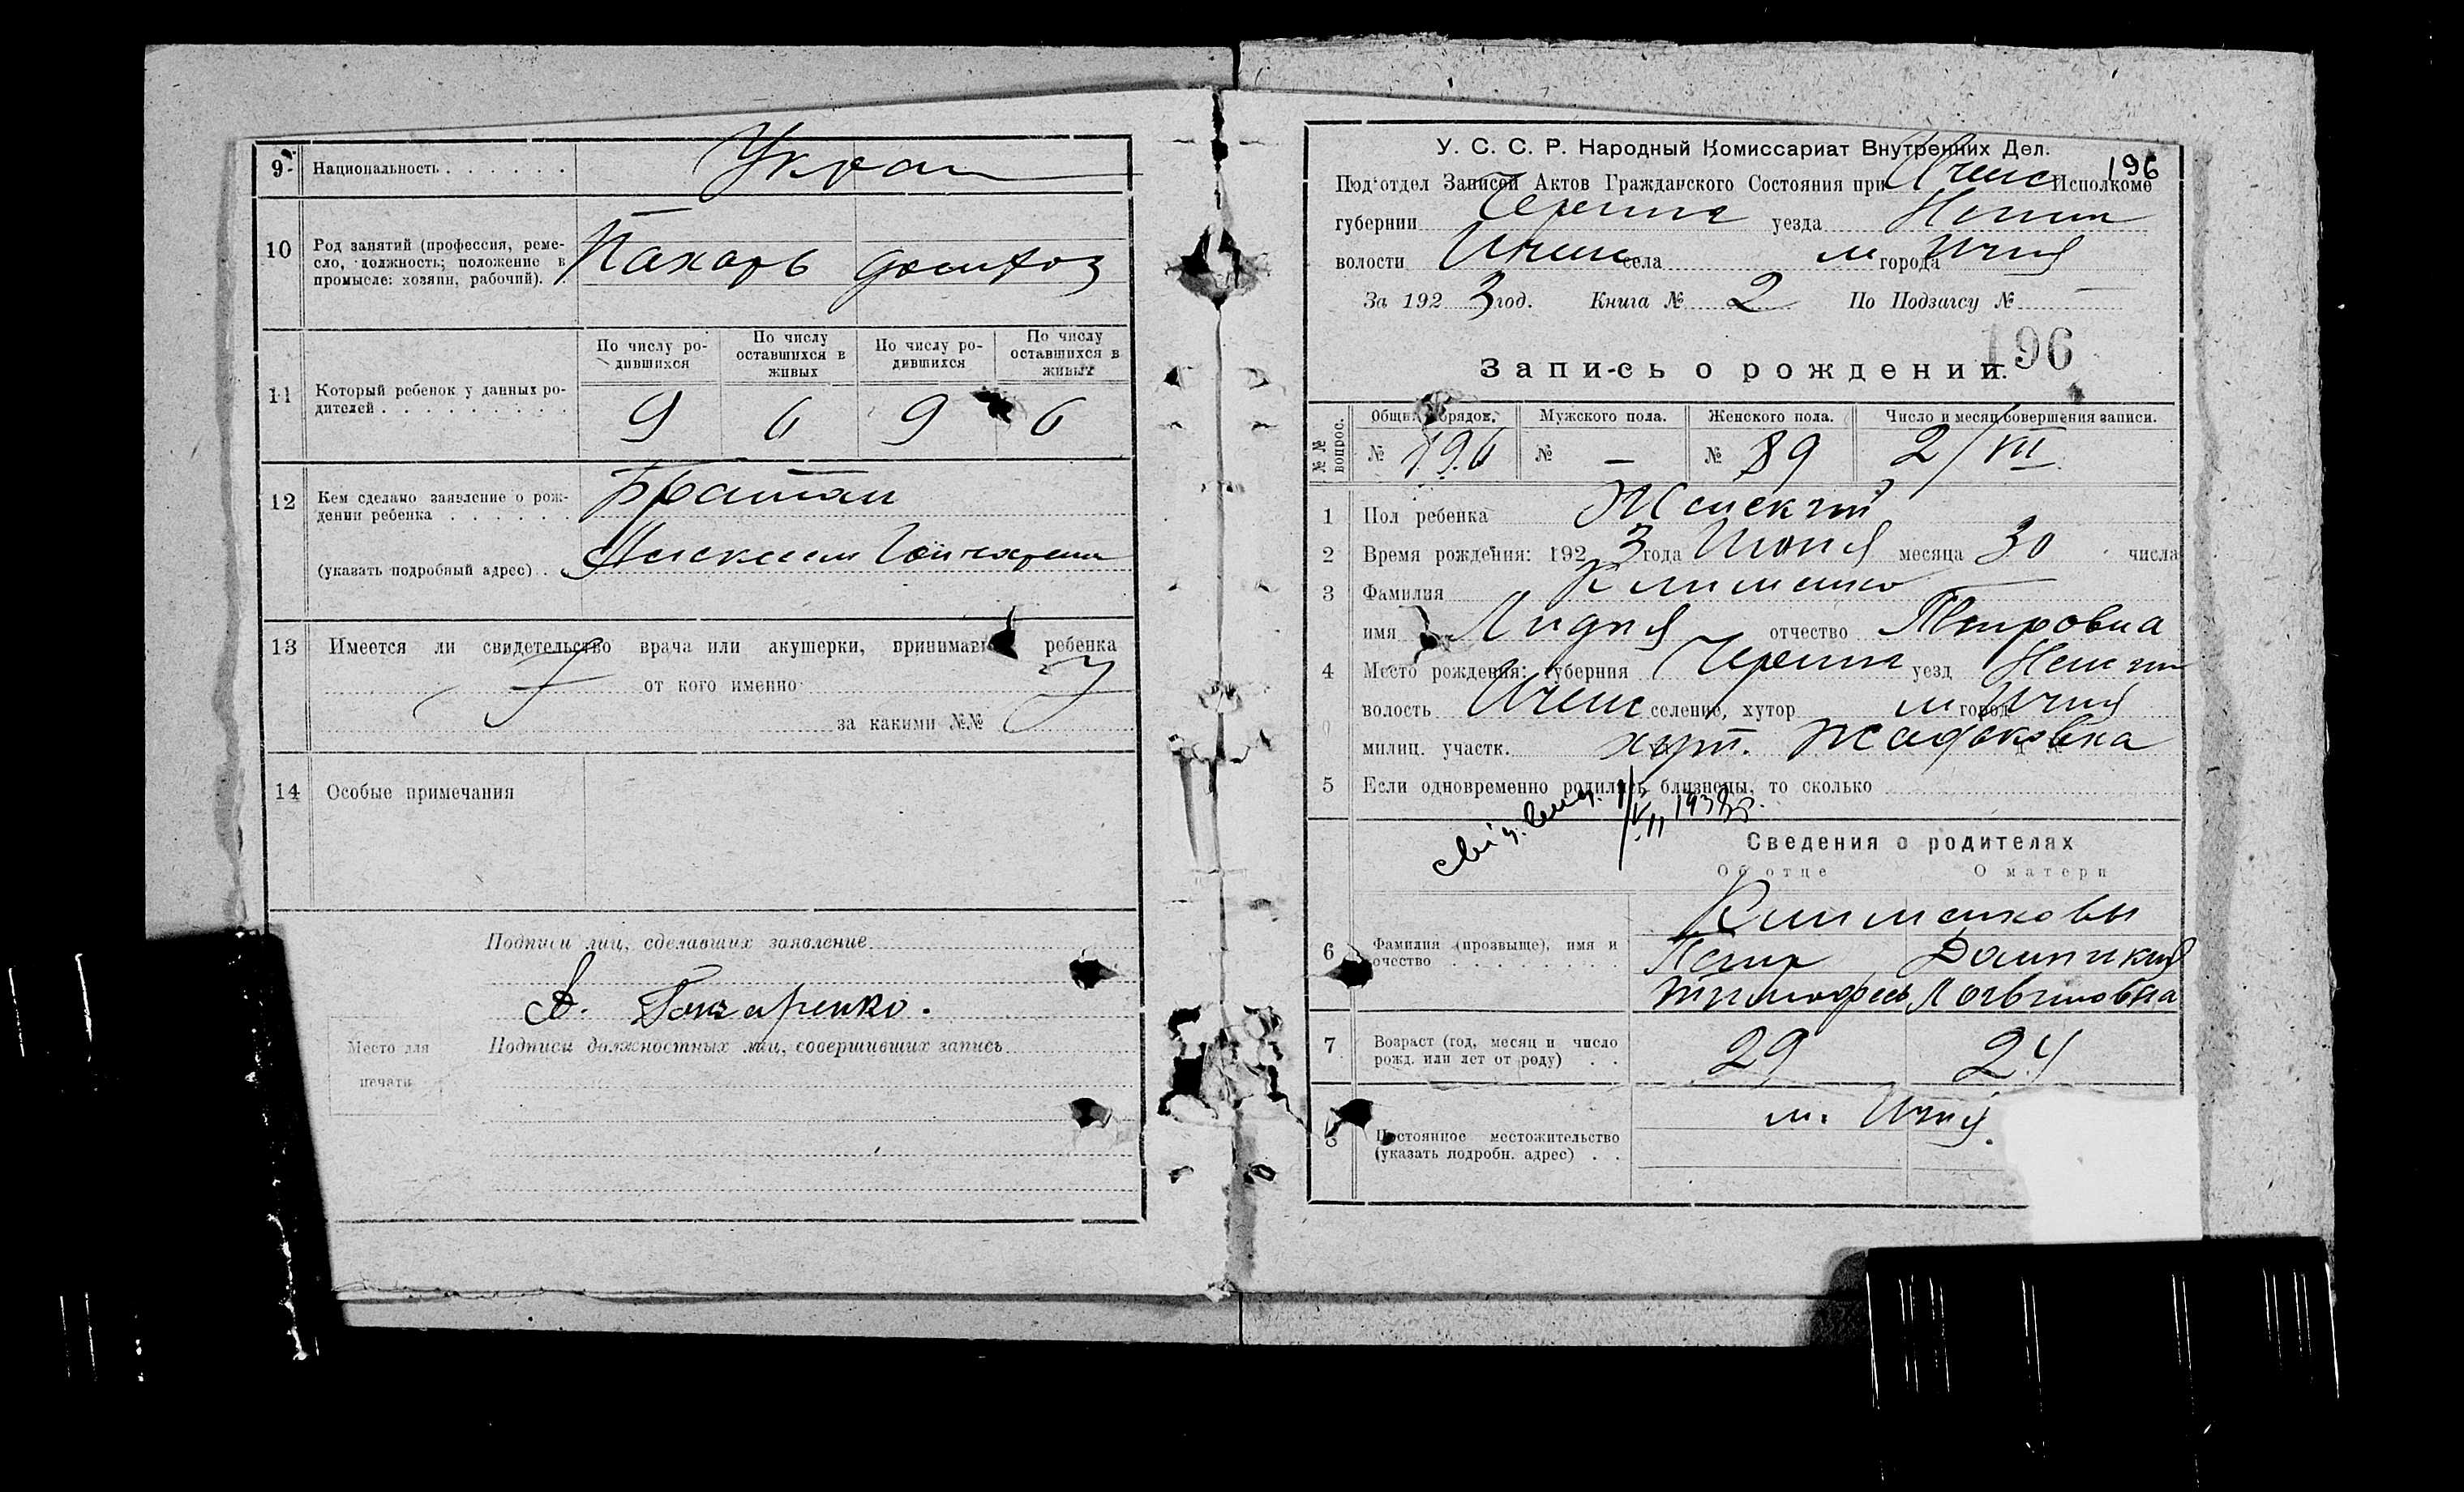 9. Национальность . . . . . . Укра
10 Род занятий (профессия, реме-
сло, должность; положение в
промысле: хозяин, рабочий). .
Пахарь домхоз
11 Который ребенок у данных ро-
дителей . . . . . . . . . .
По числу ро-
дившихся
По числу
оставшихся в
живых
По числу ро-
дившихся
По числу
оставшихся в
живых
9 6 9 6
12 Кем сделано заявление о рож-
дении ребенка . . . . . .
(указать подробный адрес) . .
13 Имеется ли свидетельство врача или акушерки, принимавш ребенка
от кого именно
за какими №№
14 Особые примечания
Подписи лиц, сделавших заявление
А. Гончаренко.
Подписи должностных лиц, совершивших запись
Место для
печати
У. С. С. Р. Народный Комиссариат Внутренних Дел.
196
Под'отдел Записей Актов Гражданского Состояния при Иченс Исполкоме
губернии Черниг уезда Нежин
волости Иченс села м города Ичня
За 192 3 год. Книга № 2 По Подзагсу № —
196
Запись о рождении.
№№ вопрос.
Общий порядок. Мужского пола. Женского пола. Число и месяц совершения записи.
№ 196 № — № 89 2/VII
1 Пол ребенка Женский
2 Время рождения: 192 3 года Июня месяца 30 числа
3 Фамилия Клименко
имя Лидия отчество Петровна
4 Место рождения: губерния Черниг уезд Нежин
волость Иченс селение, хутор м город Ичня
милиц. участк. хут. Жадьковка
5 Если одновременно родились близнецы, то сколько
1/VII 1938р.
Сведения о родителях
Об отце О матери
6 Фамилия (прозвыще), имя и
очество . . . . . . . . .
Клименковы
Петр Домникия
Тимофеев Логвиновна
7 Возраст (год, месяц и число
рожд. или лет от роду) . .
29 24
8 Постоянное местожительство
(указать подробн. адрес) . .
м. Ичня.